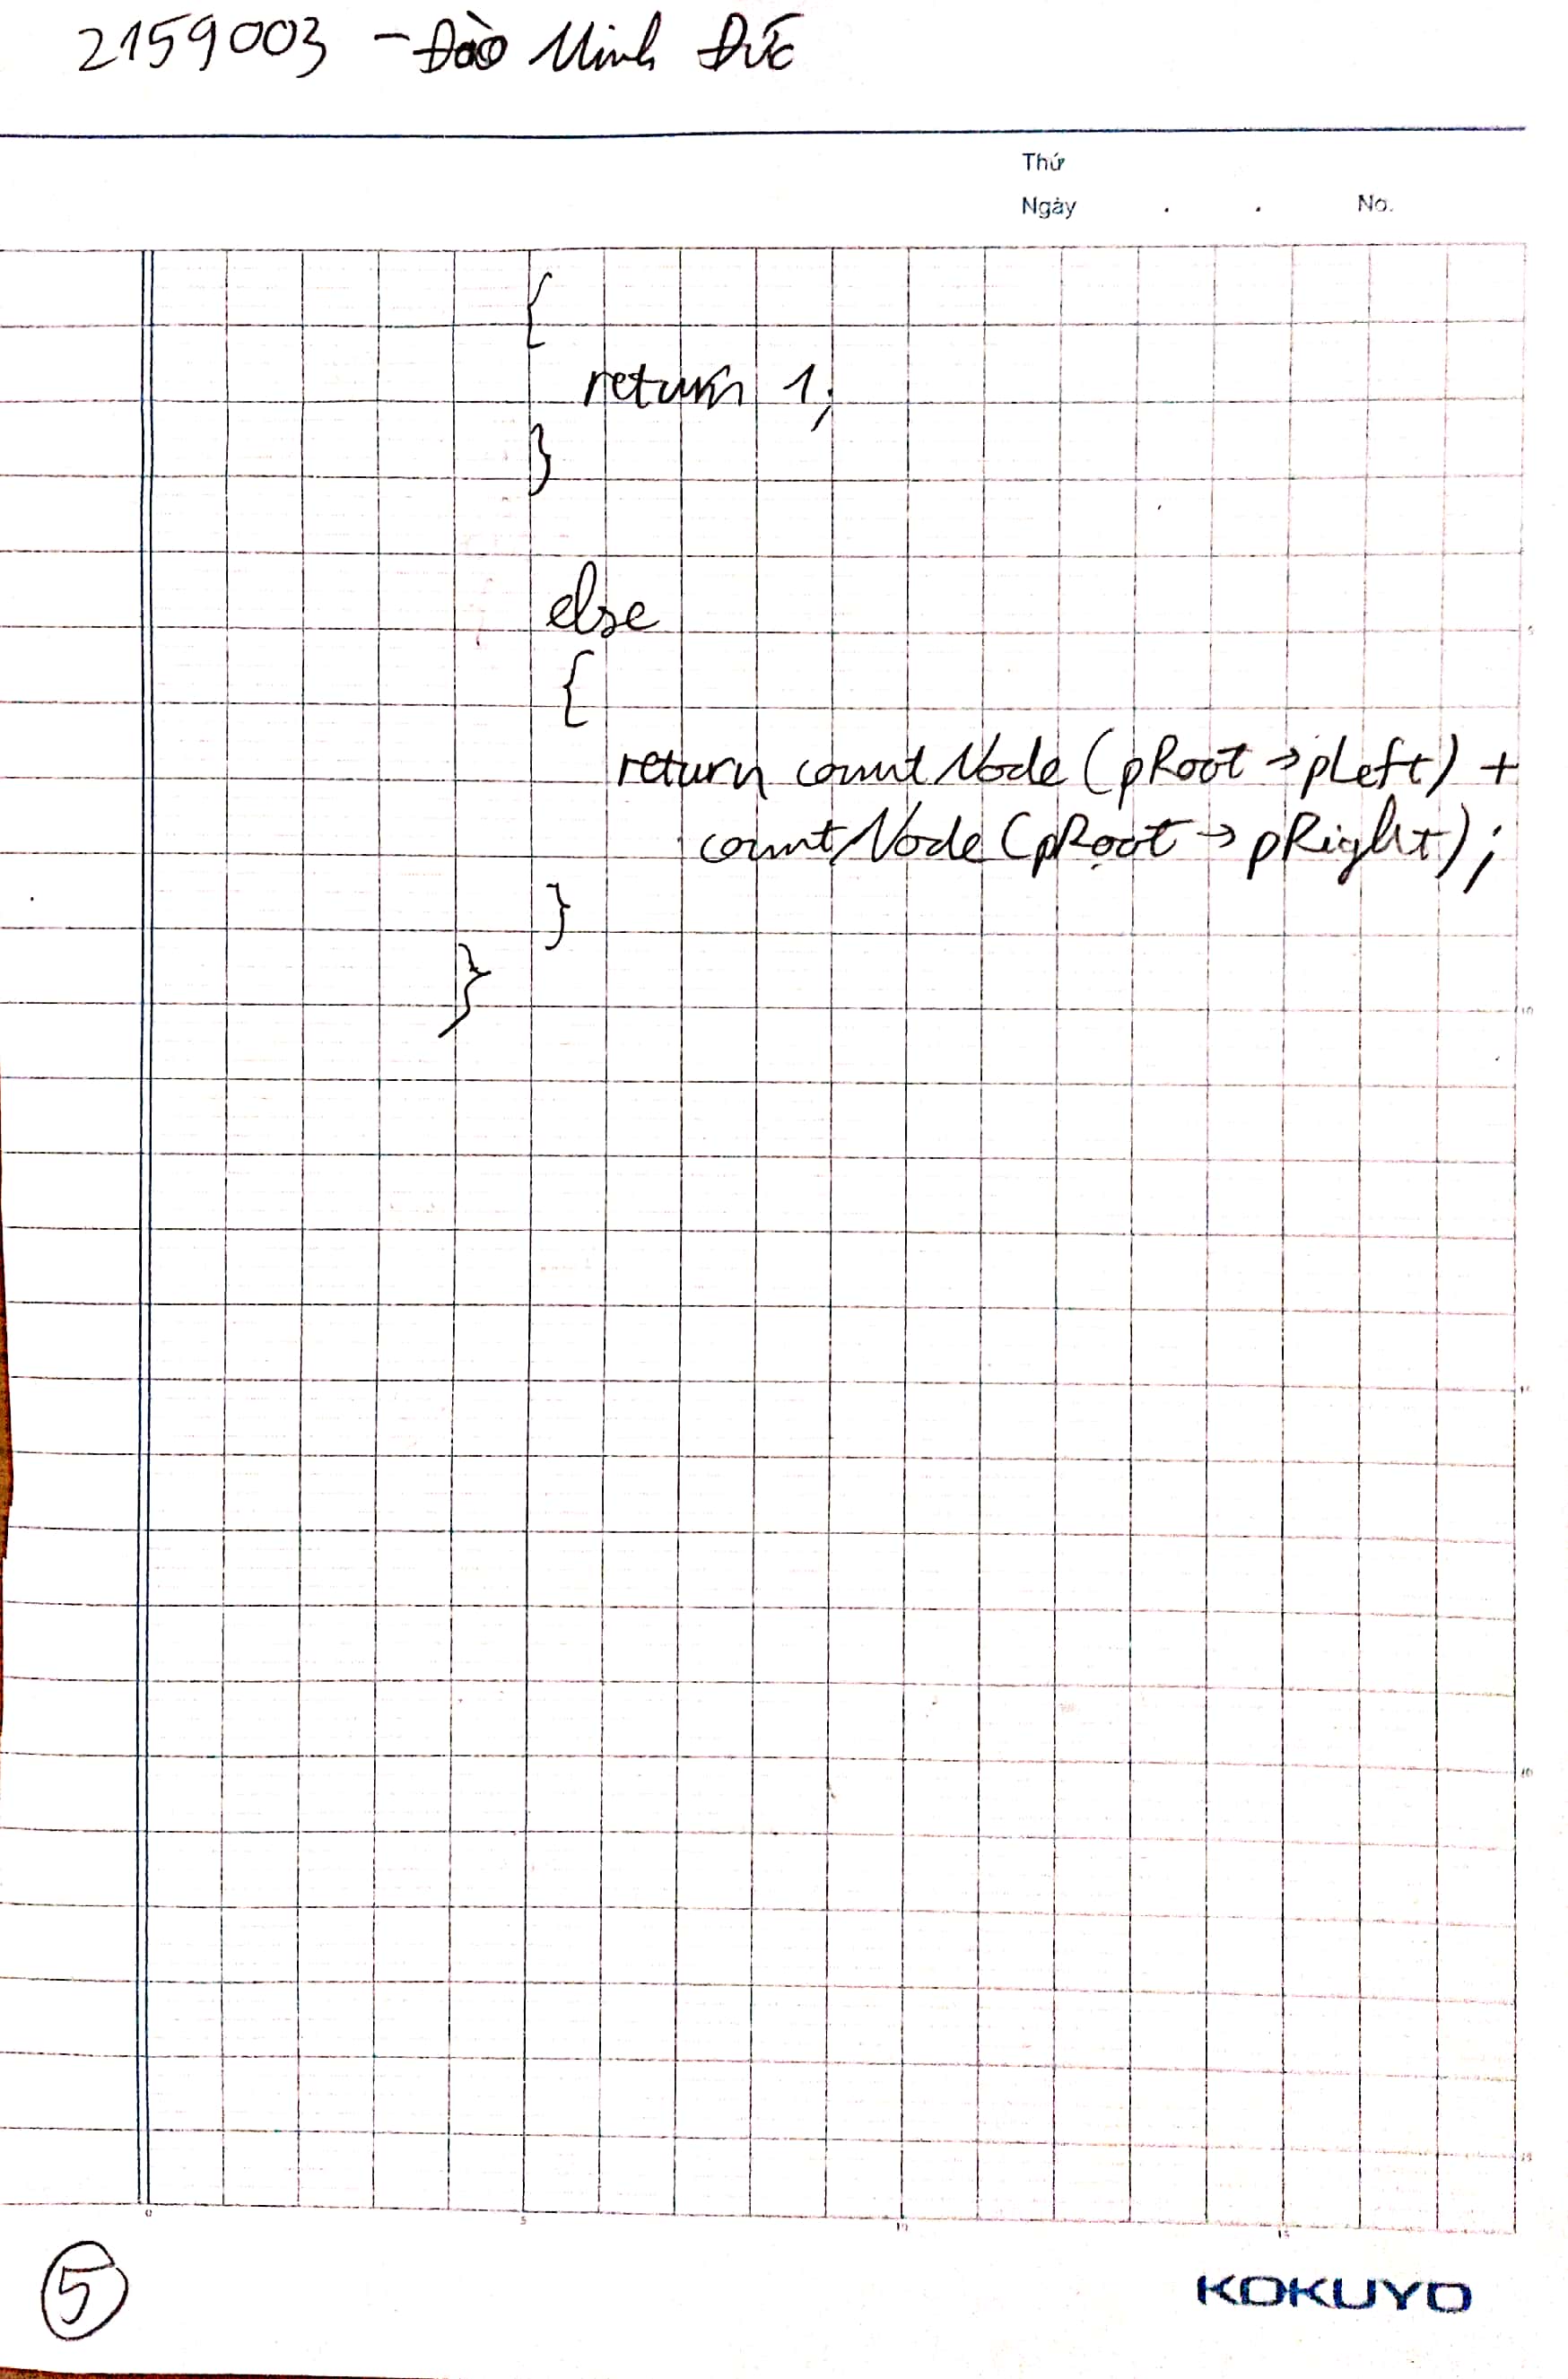 2159003 - Đào Minh Đức
Thứ
Ngày . . No.
{
return 1;
}
else
{
return countNode (pRoot → pLeft) +
countNode (pRoot → pRight);
}
}
5
KOKUYO